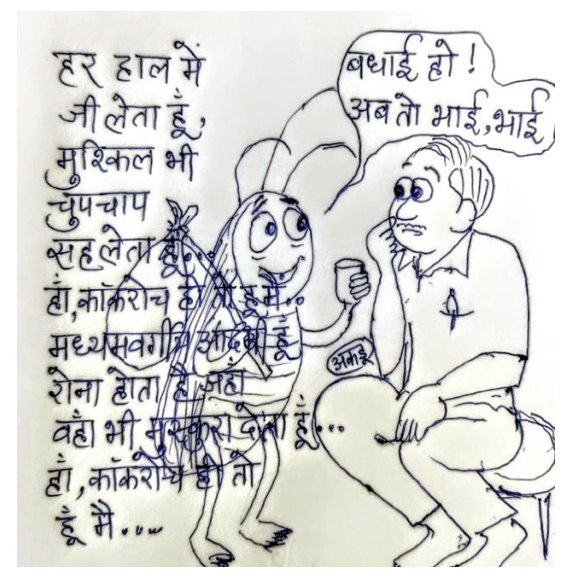 हर हाल में
जी लेता हूँ,
मुश्किल भी
चुपचाप
सह लेता हूँ...
हाँ, कॉकरोच ही तो हूँ मैं..
मध्यमवर्गीय आदमी हूँ
रोना होता है जहाँ
वहाँ भी मुस्कुरा देता हूँ...
हाँ, कॉकरोच ही तो
हूँ मैं....
बधाई हो!
अब तो भाई, भाई